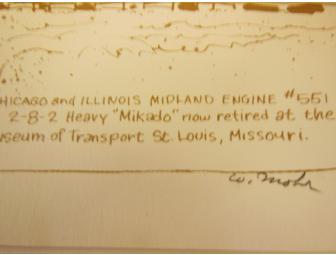 HICAGO and ILLINOIS MIDLAND ENGINE #551
2-8-2 Heavy "Mikado" now retired at the
useum of Transport St. Louis, Missouri.
W. Mohr